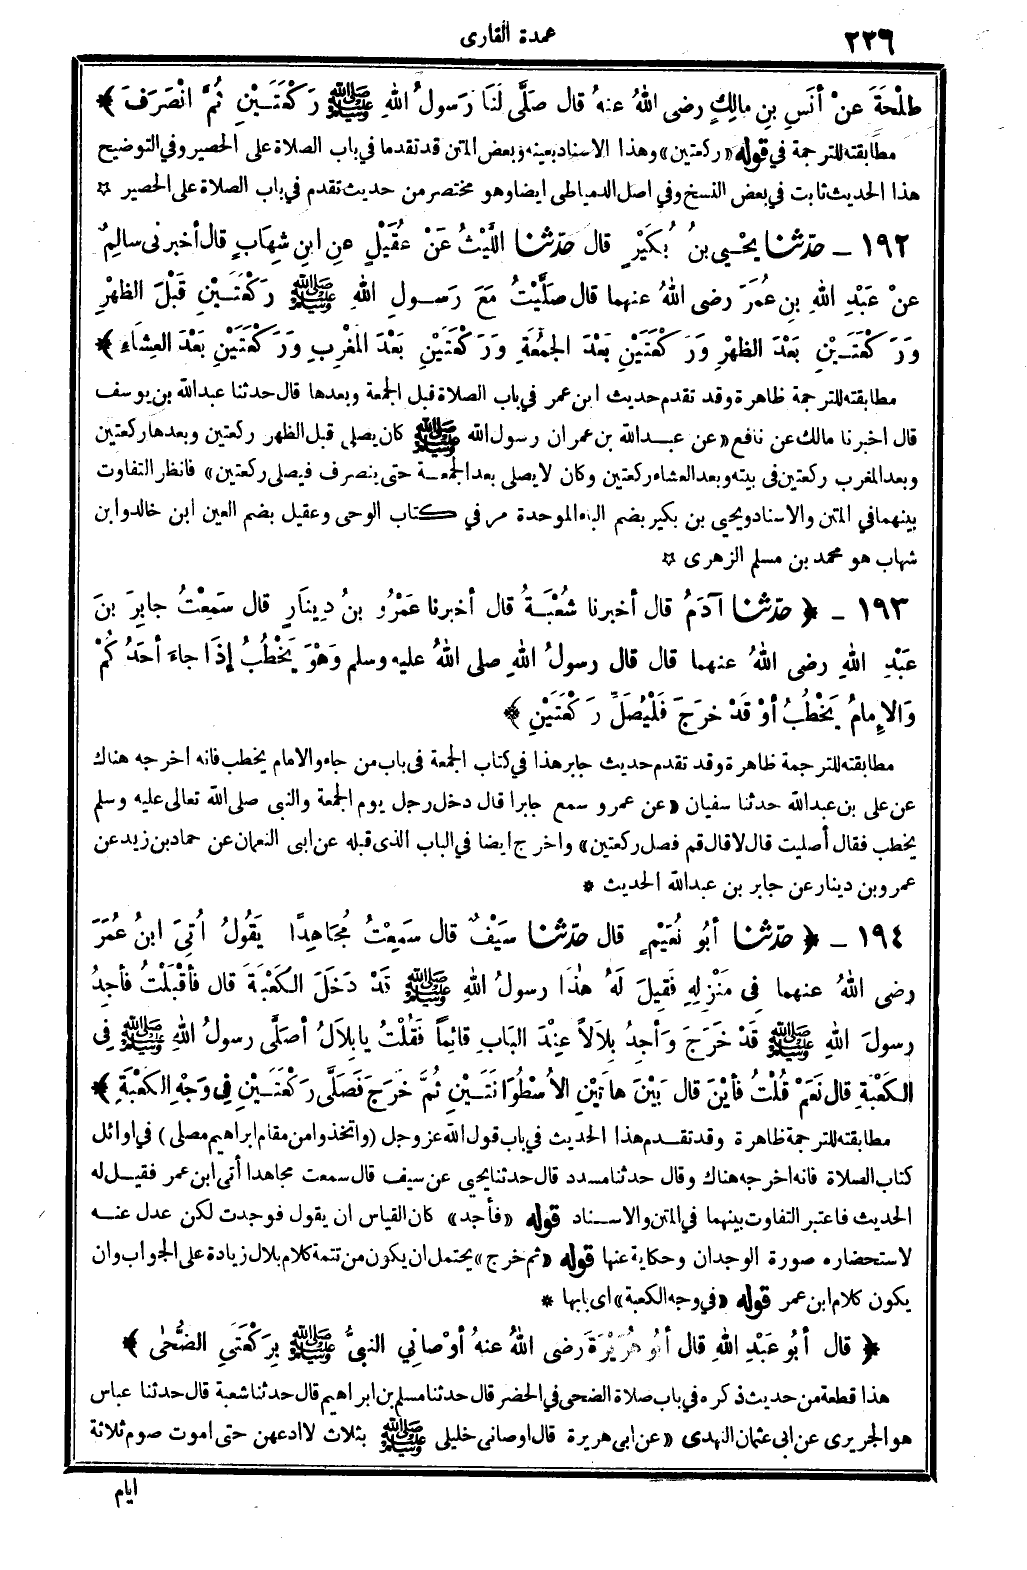 ٢٣٦
عمدة القارى
طلْحَةَ عنْ أنَسِ بنِ مالِكٍ رضى اللهُ عنهُ قال صَلَّى لَنَا رَسولُ اللهِ ﷺ رَكْعَتَـيْنِ ثُمَّ انْصَرَفَ ﴾
مطابقته للترجمة في قوله «ركعتين» وهذا الاسناد بعينه وبعض المتن قد تقدما في باب الصلاة على الحصير وفي التوضيح
هذا الحديث ثابت في بعض النسخ وفي اصل الدمياطى ايضا وهو مختصر من حديث تقدم في باب الصلاة على الحصير ☆
١٩٢ ــ حدّثنا يحْيـى بنُ بُكَيْرٍ قال حدّثنا اللَّيْثُ عَنْ عُقَيْلٍ عنِ ابنِ شِهَابٍ قال أخبرنى سالِمٌ
عنْ عَبْدِ اللهِ بنِ عُمَرَ رضى اللهُ عنهما قال صَلَّيْتُ مَعَ رَسـولِ اللهِ ﷺ رَكْعَتَـيْنِ قَبْلَ الظهْرِ
وَرَكْعَتَـيْنِ بَعْدَ الظهْرِ وَرَكْعَتَيْنِ بعْدَ الجمُعَةِ وَرَكْعَتَيْنِ بَعْدَ المَغْرِبِ وَرَكْعَتَيْنِ بَعْدَ العِشَاءِ ﴾
مطابقته للترجمة ظاهرة وقد تقدم حديث ابن عمر في باب الصلاة قبل الجمعة وبعدها قال حدثنا عبدالله بن يوسف
قال اخبرنا مالك عن نافع «عن عبـدالله بن عمر ان رسول الله ﷺ كان يصلى قبل الظهر ركعتين وبعدها ركعتين
وبعد المغرب ركعتين في بيته وبعد العشاء ركعتين وكان لا يصلى بعد الجمعـة حتى ينصرف فيصلى ركعتين» فانظر التفاوت
بينهما في المتن والاسناد ويحيى بن بكير بضم الباء الموحدة مر في كتاب الوحى وعقيل بضم العين ابن خالد وابن
شهاب هو محمد بن مسلم الزهرى ☆
١٩٣ ــ ﴿ حدّثنا آدَمُ قال أخبرنا شُعْبَـةُ قال أخبرنا عَمْرُو بنُ دِينَارٍ قال سَمِعْتُ جابِرَ بنَ
عَبْدِ اللهِ رضى اللهُ عنهما قال قال رسولُ اللهِ صلى اللهُ عليه وسلم وَهْوَ يَخْطُبُ إذَا جاءَ أحَدُكُمْ
وَالإِمامُ يَخْطُبُ أوْ قَدْ خرَجَ فَلْيُصَلِّ رَكْعَتَيْنِ ﴾
مطابقته للترجمة ظاهرة وقد تقدم حديث جابر هذا في كتاب الجمعة في باب من جاء والامام يخطب فانه اخرجه هناك
عن على بن عبدالله حدثنا سفيان «عن عمرو سمع جابرا قال دخل رجل يوم الجمعة والنبى صلى الله تعالى عليه وسلم
يخطب فقال أصليت قال لا قال قم فصل ركعتين» واخرج ايضا في الباب الذى قبله عن ابى النعمان عن حماد بن زيد عن
عمرو بن دينار عن جابر بن عبدالله الحديث *
١٩٤ ــ ﴿ حدّثنا أبُو نُعَيْمٍ قال حدّثنا سَيْفٌ قال سَمِعْتُ مُجَاهِدًا يَقُولُ أُتِيَ ابنُ عُمَرَ
رضى اللهُ عنهما في مَنْزِلِهِ فَقِيلَ لَهُ هٰذَا رسولُ اللهِ ﷺ قَدْ دَخَلَ الكَعْبَةَ قال فأقْبَلْتُ فأجِدُ
رسولَ اللهِ ﷺ قَدْ خَرَجَ وَأجِدُ بِلاَلاً عِنْدَ البَابِ قائِماً فَقُلْتُ يابِلاَلُ أصَلَّى رسولُ اللهِ ﷺ فِي
الكَعْبَةِ قال نَعَمْ قُلْتُ فأيْنَ قال بَيْنَ هاتَيْنِ الأُسْطُوَانَتَـيْنِ ثُمَّ خَرَجَ فَصَلَّى رَكْعَتَـيْنِ فِي وَجْهِ الكَعْبَةِ ﴾
مطابقته للترجمة ظاهرة وقد تقـدم هذا الحديث في باب قول الله عز وجل (واتخذوا من مقام ابراهيم مصلى) في اوائل
كتاب الصلاة فانه اخرجه هناك وقال حدثنا مسدد قال حدثنا يحيى عن سيف قال سمعت مجاهدا أتى ابن عمر فقيـل له
الحديث فاعتبر التفاوت بينهما في المتن والاسـناد قوله «فأجد» كان القياس ان يقول فوجدت لكن عدل عنـه
لاستحضاره صورة الوجدان وحكاية عنها قوله «ثم خرج» يحتمل ان يكون من تتمة كلام بلال زيادة على الجواب وان
يكون كلام ابن عمر قوله «في وجه الكعبة» اى بابها *
﴿ قال أبُو عَبْدِ اللهِ قال أبُو هُرَيْرَةَ رضى اللهُ عنهُ أوْصانِي النبيُّ ﷺ بِرَكْعَتَيِ الضُّحٰى ﴾
هذا قطعة من حديث ذكره في باب صلاة الضحى في الحضر قال حدثنا مسلم بن ابراهيم قال حدثنا شعبة قال حدثنا عباس
هو الجريرى عن ابى عثمان النهدى «عن ابى هريرة قال اوصانى خليلى ﷺ بثلاث لا ادعهن حتى اموت صوم ثلاثة
ايام